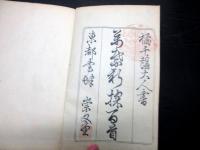 橘千蔭大人書
萬歳新採百首
東都書肆 崇文堂